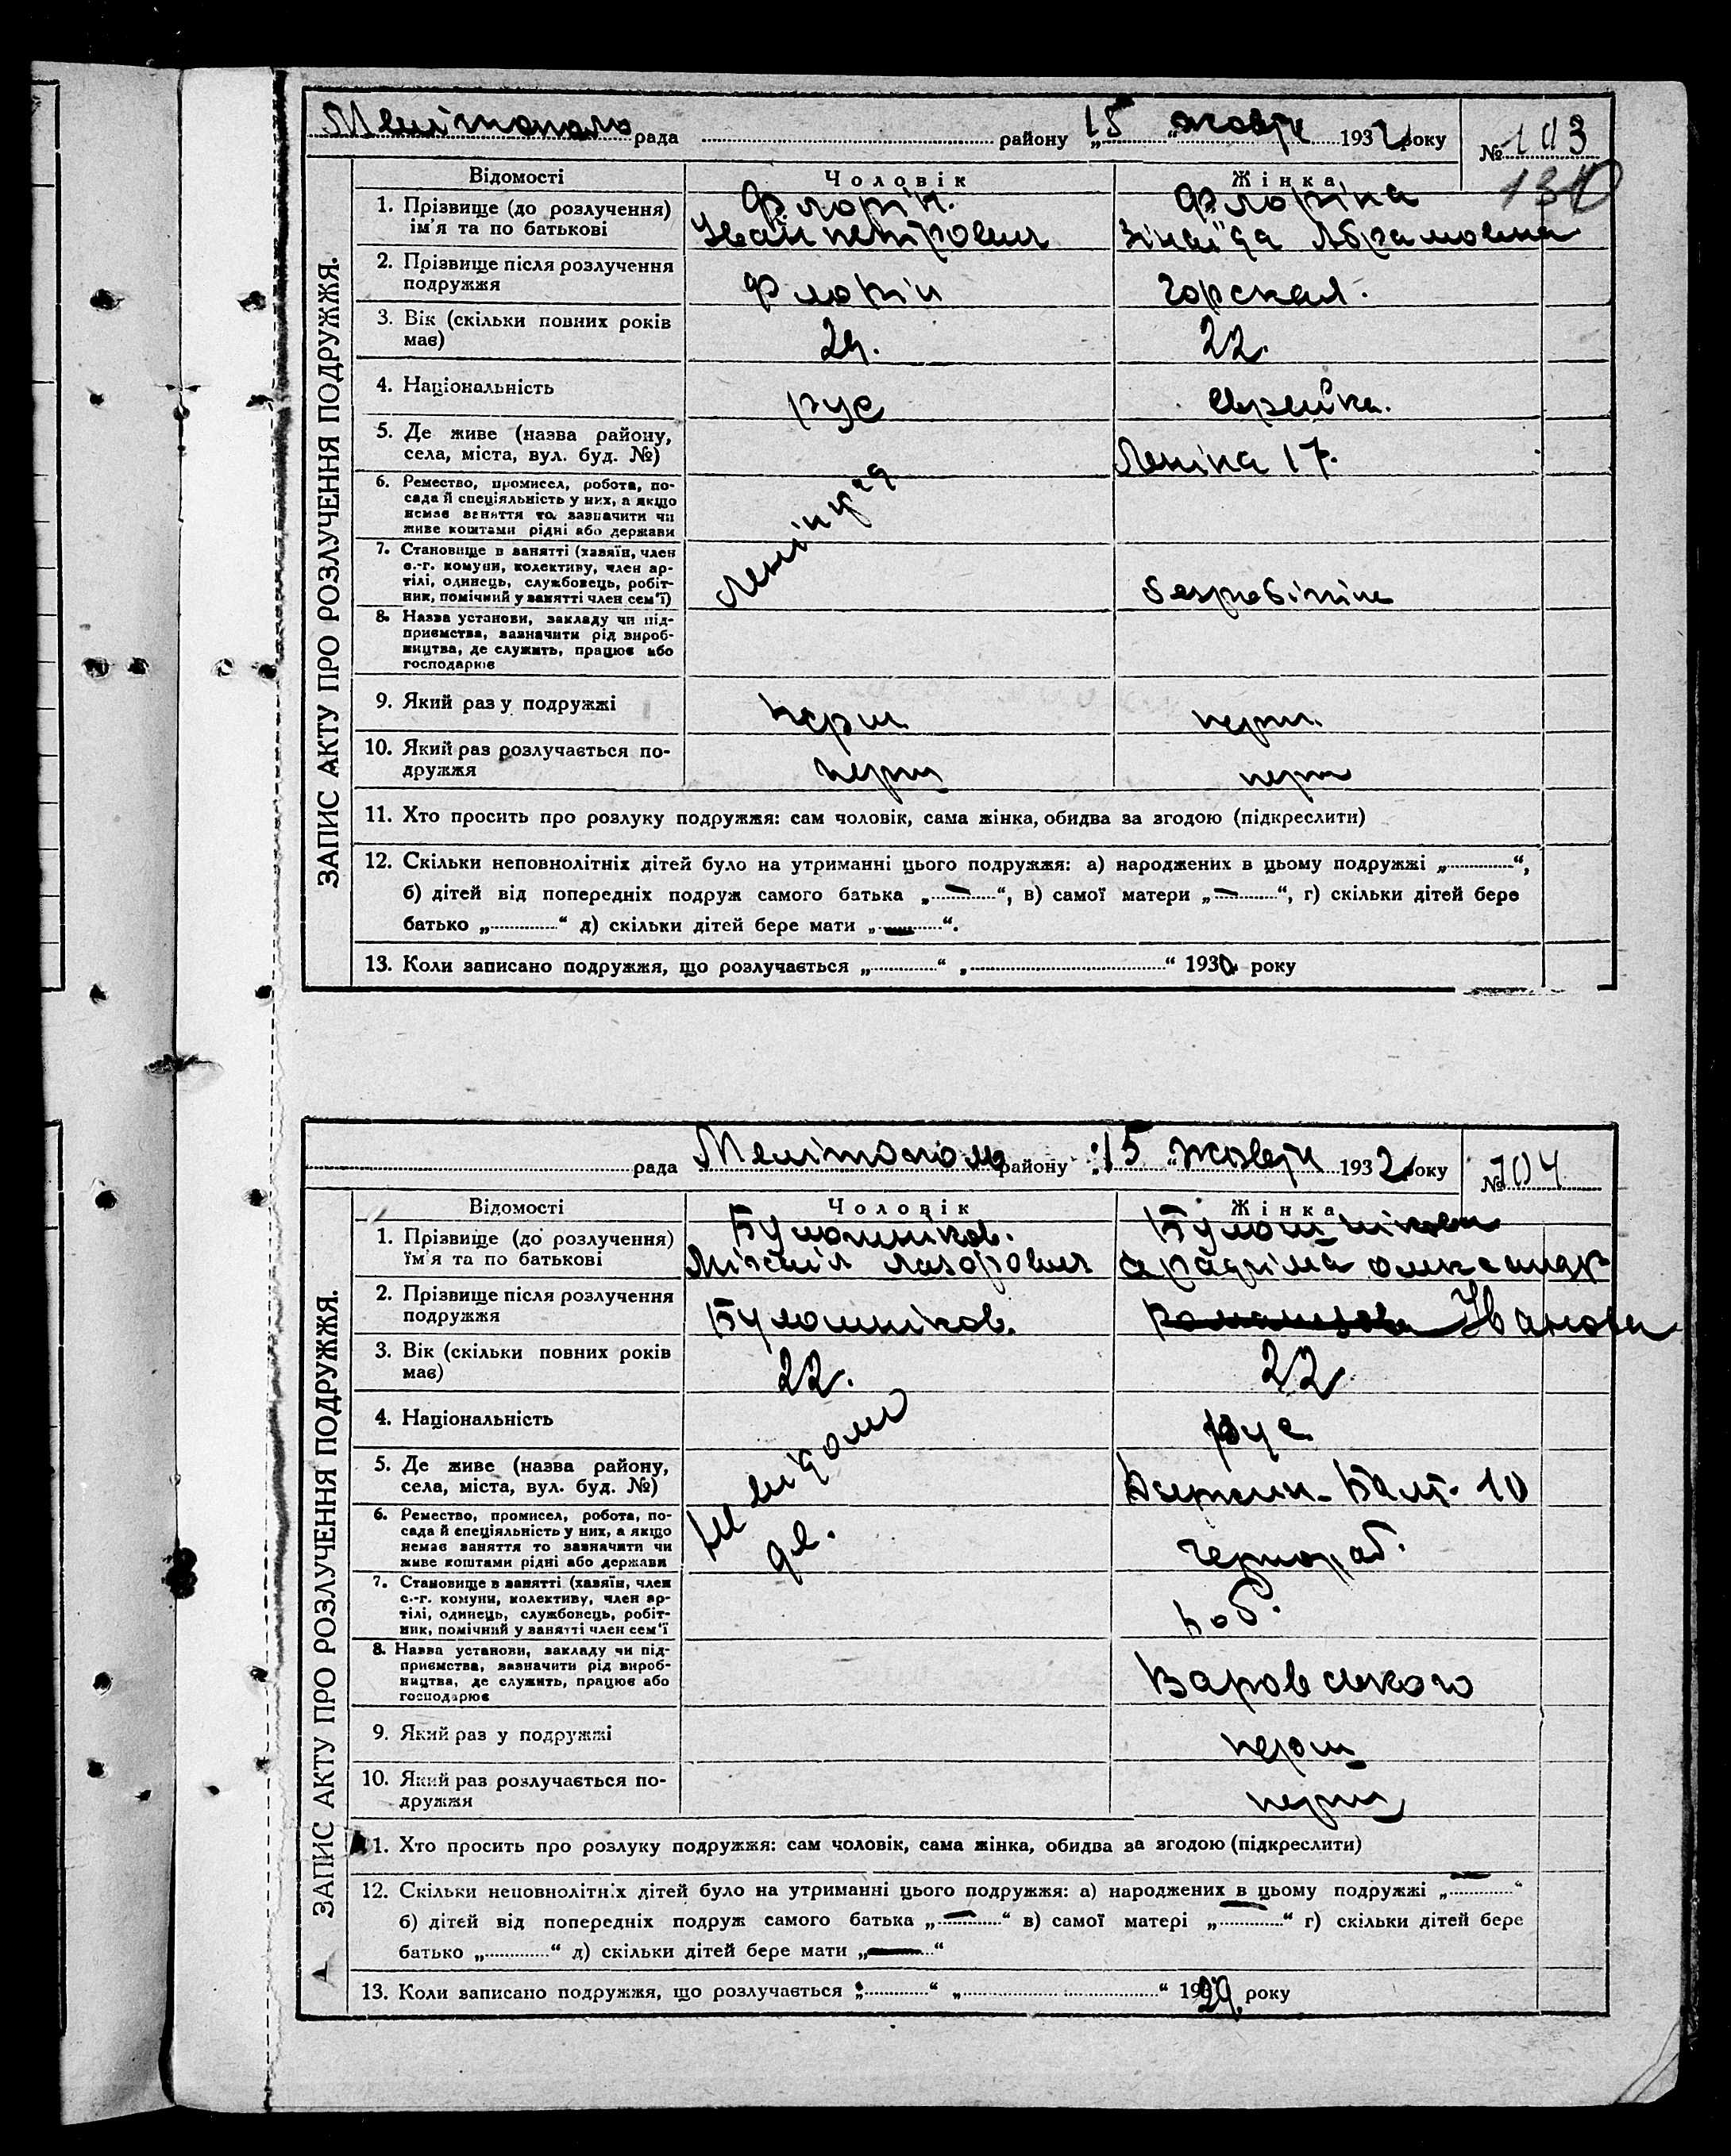 Мелітополь рада району „15 „жовтн 1932 року № 103
130
Відомості Чоловік Жінка
1. Прізвище (до розлучення) Флорін. Флоріна
ім'я та по батькові Іван петрович Зінаїда Абрамовна
2. Прізвище після розлучення
подружжя Флорін Горская.
3. Вік (скільки повних років
має) 24. 22.
4. Національність рус еврейка.
5. Де живе (назва району,
села, міста, вул. буд. №) Леніна 17.
6. Ремество, промисел, робота, по-
сада й спеціяльність у них, а якщо
немає заняття то зазначити чи
живе коштами рідні або держави
Ленінград
7. Становище в занятті (хазяїн, член
с.-г. комуни, колективу, член ар-
тілі, одинець, службовець, робіт-
ник, помічний у занятті член сем'ї) безробітня
8. Назва установи, закладу чи під-
приємства, зазначити рід вироб-
ництва, де служить, працює або
господарює
9. Який раз у подружжі перш перш.
10. Який раз розлучається по-
дружжя перш перш
11. Хто просить про розлуку подружжя: сам чоловік, сама жінка, обидва за згодою (підкреслити)
12. Скільки неповнолітніх дітей було на утриманні цього подружжя: а) народжених в цьому подружжі „ “,
б) дітей від попередніх подруж самого батька „—“, в) самої матери „—“, г) скільки дітей бере
батько „ “ д) скільки дітей бере мати „—“.
13. Коли записано подружжя, що розлучається „ “ „ “ 193 року
ЗАПИС АКТУ ПРО РОЗЛУЧЕННЯ ПОДРУЖЖЯ.
рада Мелітополь району „15 „жовтн 1932 року № 104
Відомості Чоловік Жінка
1. Прізвище (до розлучення) Булошніков. Булошнікова
ім'я та по батькові Міхаіл Лазарович олександр
2. Прізвище після розлучення
подружжя Булошніков. Іванова
3. Вік (скільки повних років
має) 22. 22
4. Національність рус
5. Де живе (назва району,
села, міста, вул. буд. №) 10
6. Ремество, промисел, робота, по-
сада й спеціяльність у них, а якщо
немає заняття то зазначити чи
живе коштами рідні або держави чернораб.
не відомо
де.
7. Становище в занятті (хазяїн, член
с.-г. комуни, колективу, член ар-
тілі, одинець, службовець, робіт-
ник, помічний у занятті член сем'ї роб.
8. Назва установи, закладу чи під-
приємства, зазначити рід вироб-
ництва, де служить, працює або
господарює Варовського
9. Який раз у подружжі перш
10. Який раз розлучається по-
дружжя перш
11. Хто просить про розлуку подружжя: сам чоловік, сама жінка, обидва за згодою (підкреслити)
12. Скільки неповнолітніх дітей було на утриманні цього подружжя: а) народжених в цьому подружжі „—“
б) дітей від попередніх подруж самого батька „—“ в) самої матері „—“ г) скільки дітей бере
батько „ “ д) скільки дітей бере мати „—“
13. Коли записано подружжя, що розлучається „ “ „ “ 1929 року
ЗАПИС АКТУ ПРО РОЗЛУЧЕННЯ ПОДРУЖЖЯ.